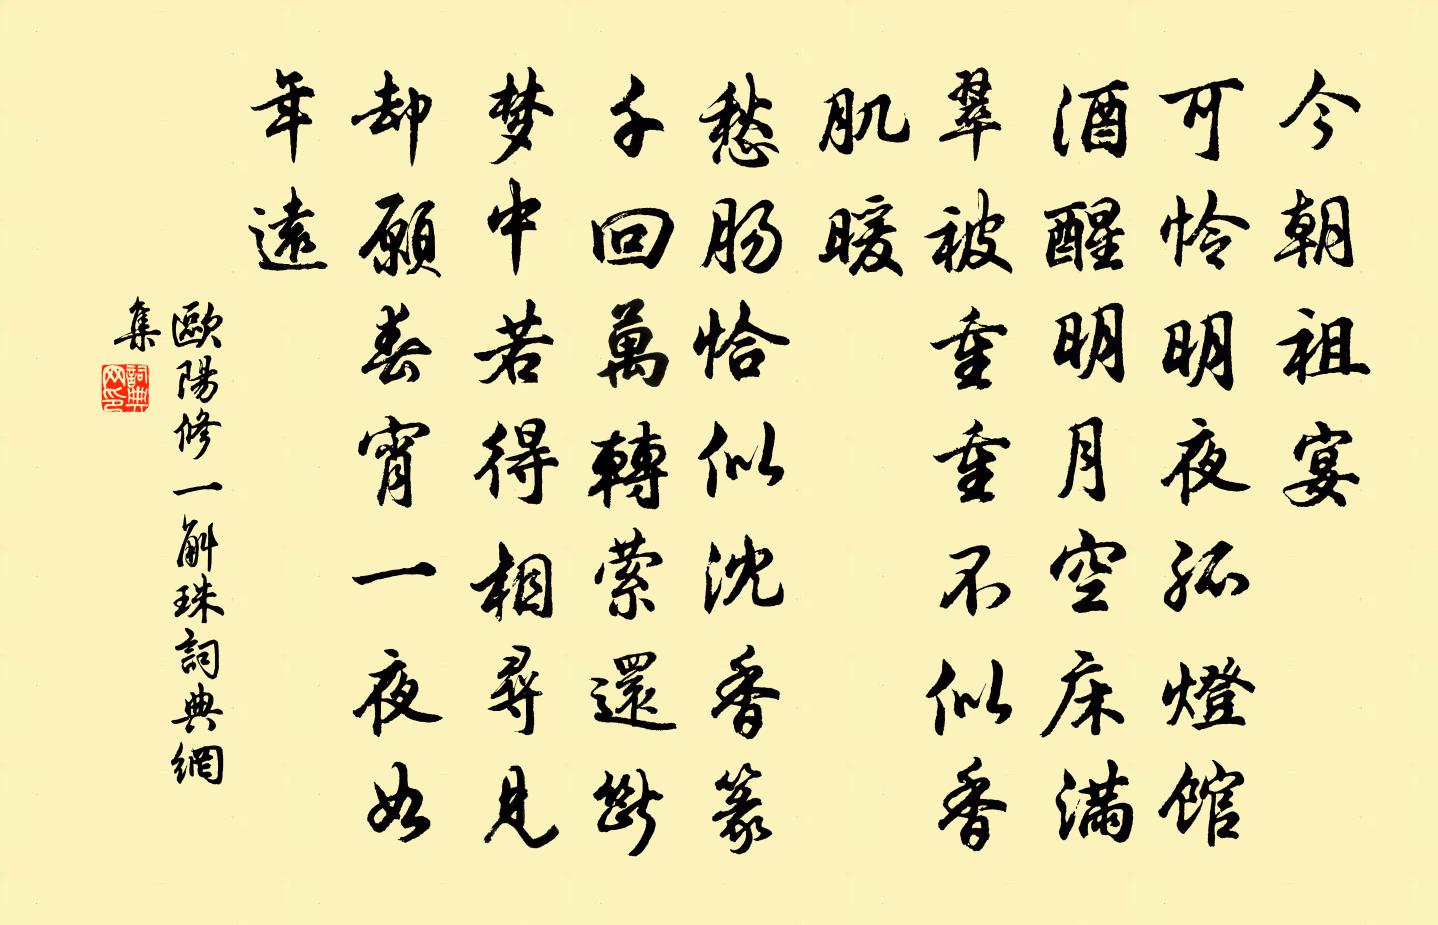 今朝祖宴
可怜明夜孤燈館
酒醒明月空床满
翠被重重不似香
肌暖
愁肠恰似沈香篆
千回萬轉萦還斷
梦中若得相尋見
却願春宵一夜如
年遠
歐陽修一斛珠詞典網
集
詞典網印